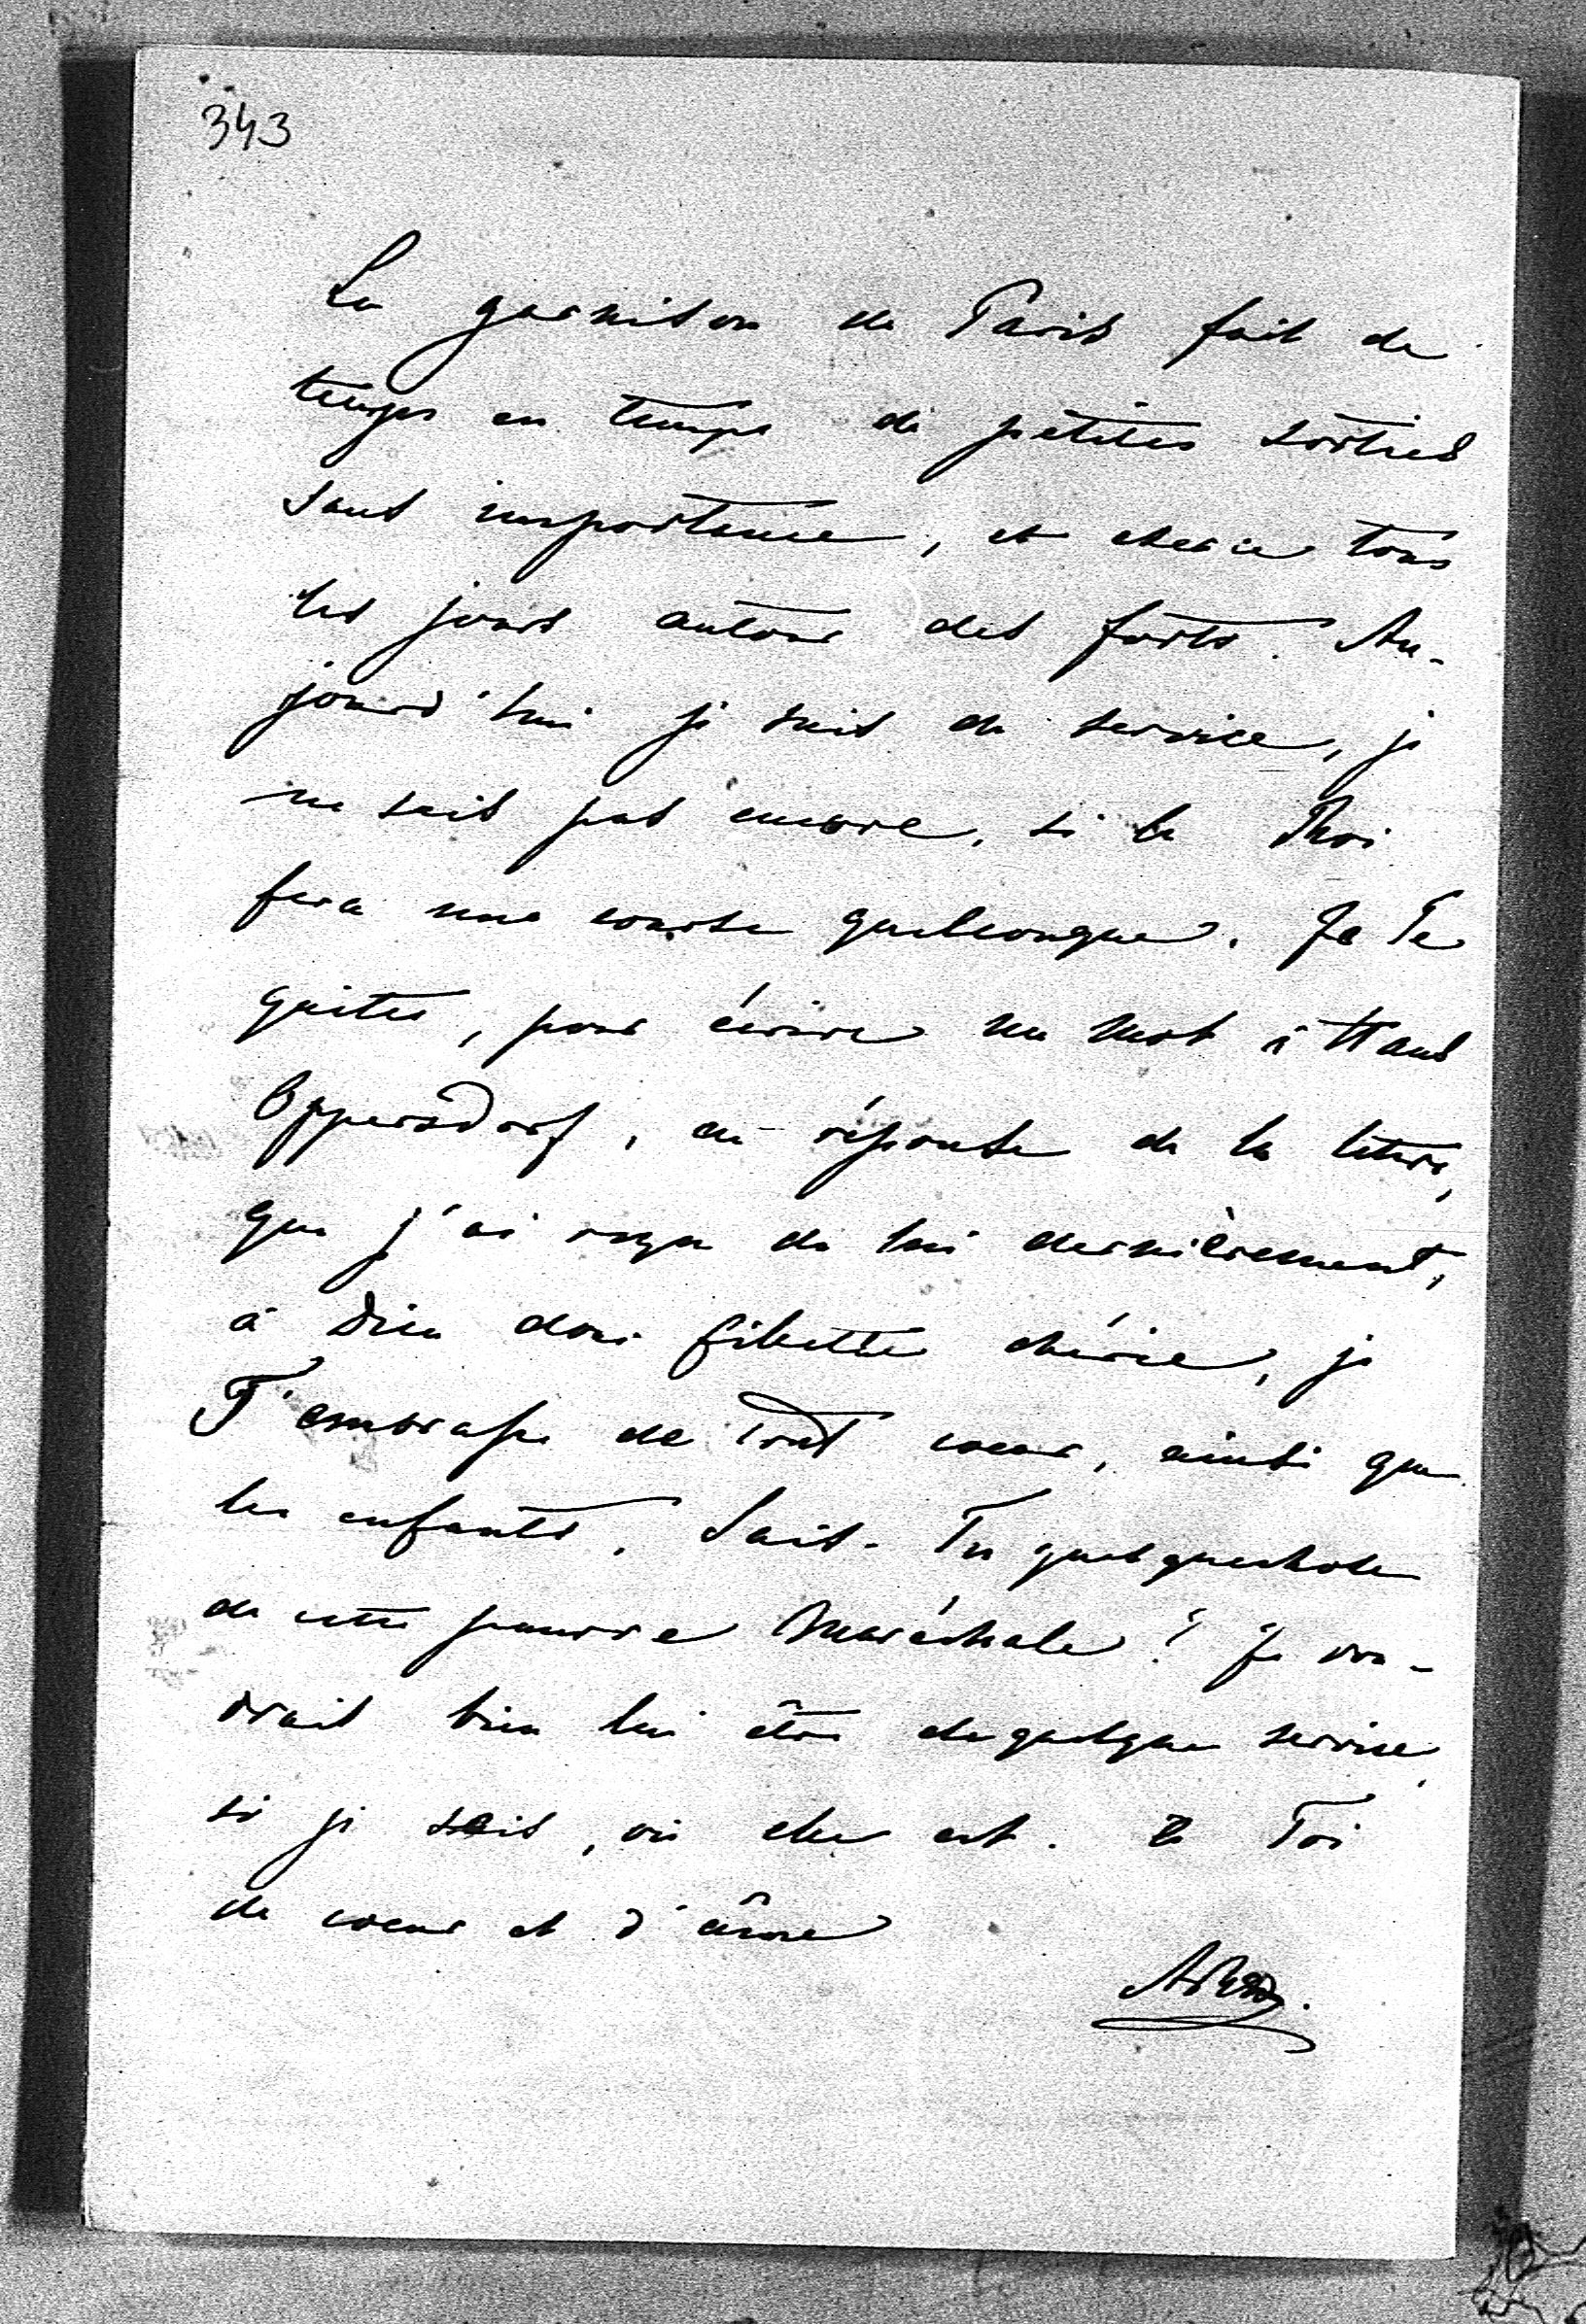 343
La garnison de Paris fait de
temps en temps de petites sorties
sans importance, et cherce tous
les jours autour des forts. Au-
jourd'hui je suis de service, je
ne sais pas encore, si le Roi
fera une course quelconque. Je Te
quitte, pour écrire un mot à Hans
Oppersdorf, en réponse de la lettre,
que j'ai reçu de lui dernièrement,
à Dieu donc filette chérie, je
T'embrasse de tout coeur, ainsi que
les enfants. Sais-Tu quelquechose
de cette pauvre Maréchale? Je vou-
drais bien lui être de quelque service,
si je sais, où elle est. à Toi
de coeur et d'âme